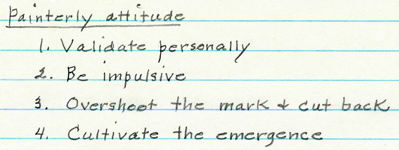 Painterly attitude
1. Validate personally
2. Be impulsive
3. Overshoot the mark & cut back
4. Cultivate the emergence